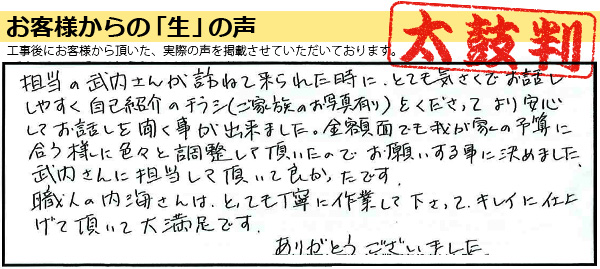 お客様からの「生」の声
工事後にお客様から頂いた、実際の声を掲載させていただいております。
太鼓判
担当の武内さんが訪ねて来られた時に、とても気さくでお話し
しやすく自己紹介のチラシ(ご家族のお写真有り)をくださってより安心
してお話しを聞く事が出来ました。金額面でも我が家の予算に
合う様に色々と調整して頂いたのでお願いする事に決めました。
武内さんに担当して頂いて良かったです。
職人の内海さんは、とても丁寧に作業して下さって、キレイに仕上
げて頂いて大満足です。
ありがとうございました